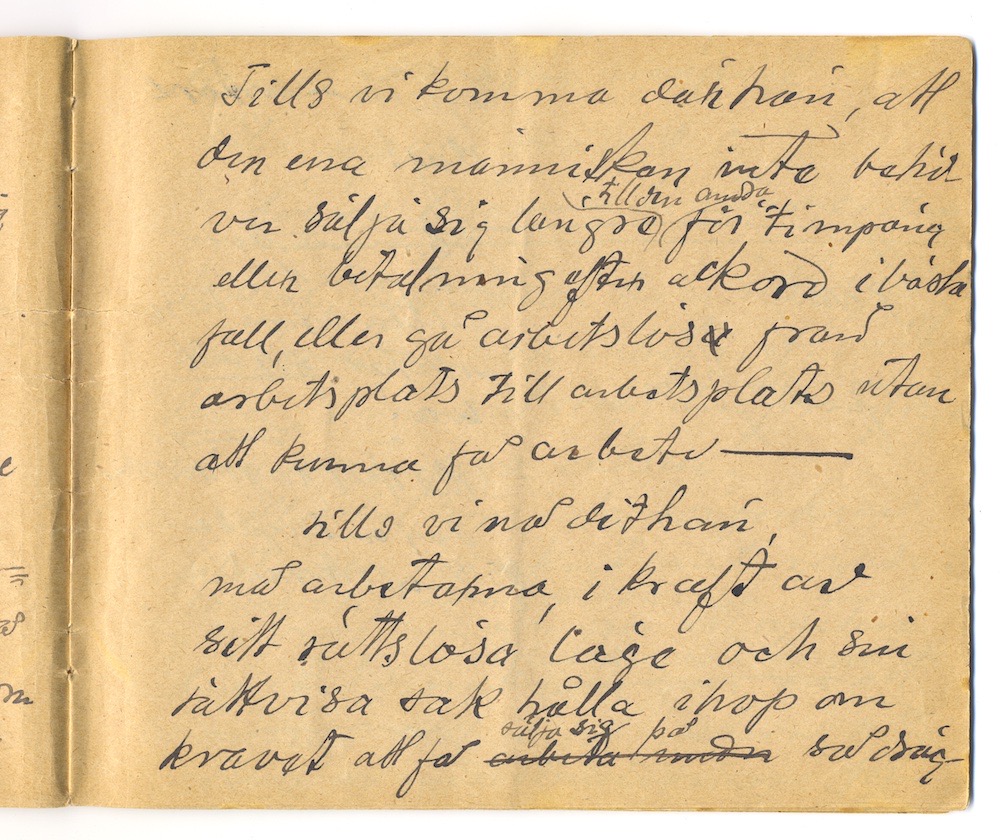 Tills vi komma därhän, att
den ena människan inte behö-
ver sälja sig längre till den andra för timpäng
eller betalning efter ackord i bästa
fall, eller gå arbetslös från
arbetsplats till arbetsplats utan
att kunna få arbete —
tills vi nå dithän,
må arbetarna, i kraft av
sitt rättslösa läge och sin
rättvisa sak hålla ihop om
sälja sig på
kravet att få arbeta under så dräg-